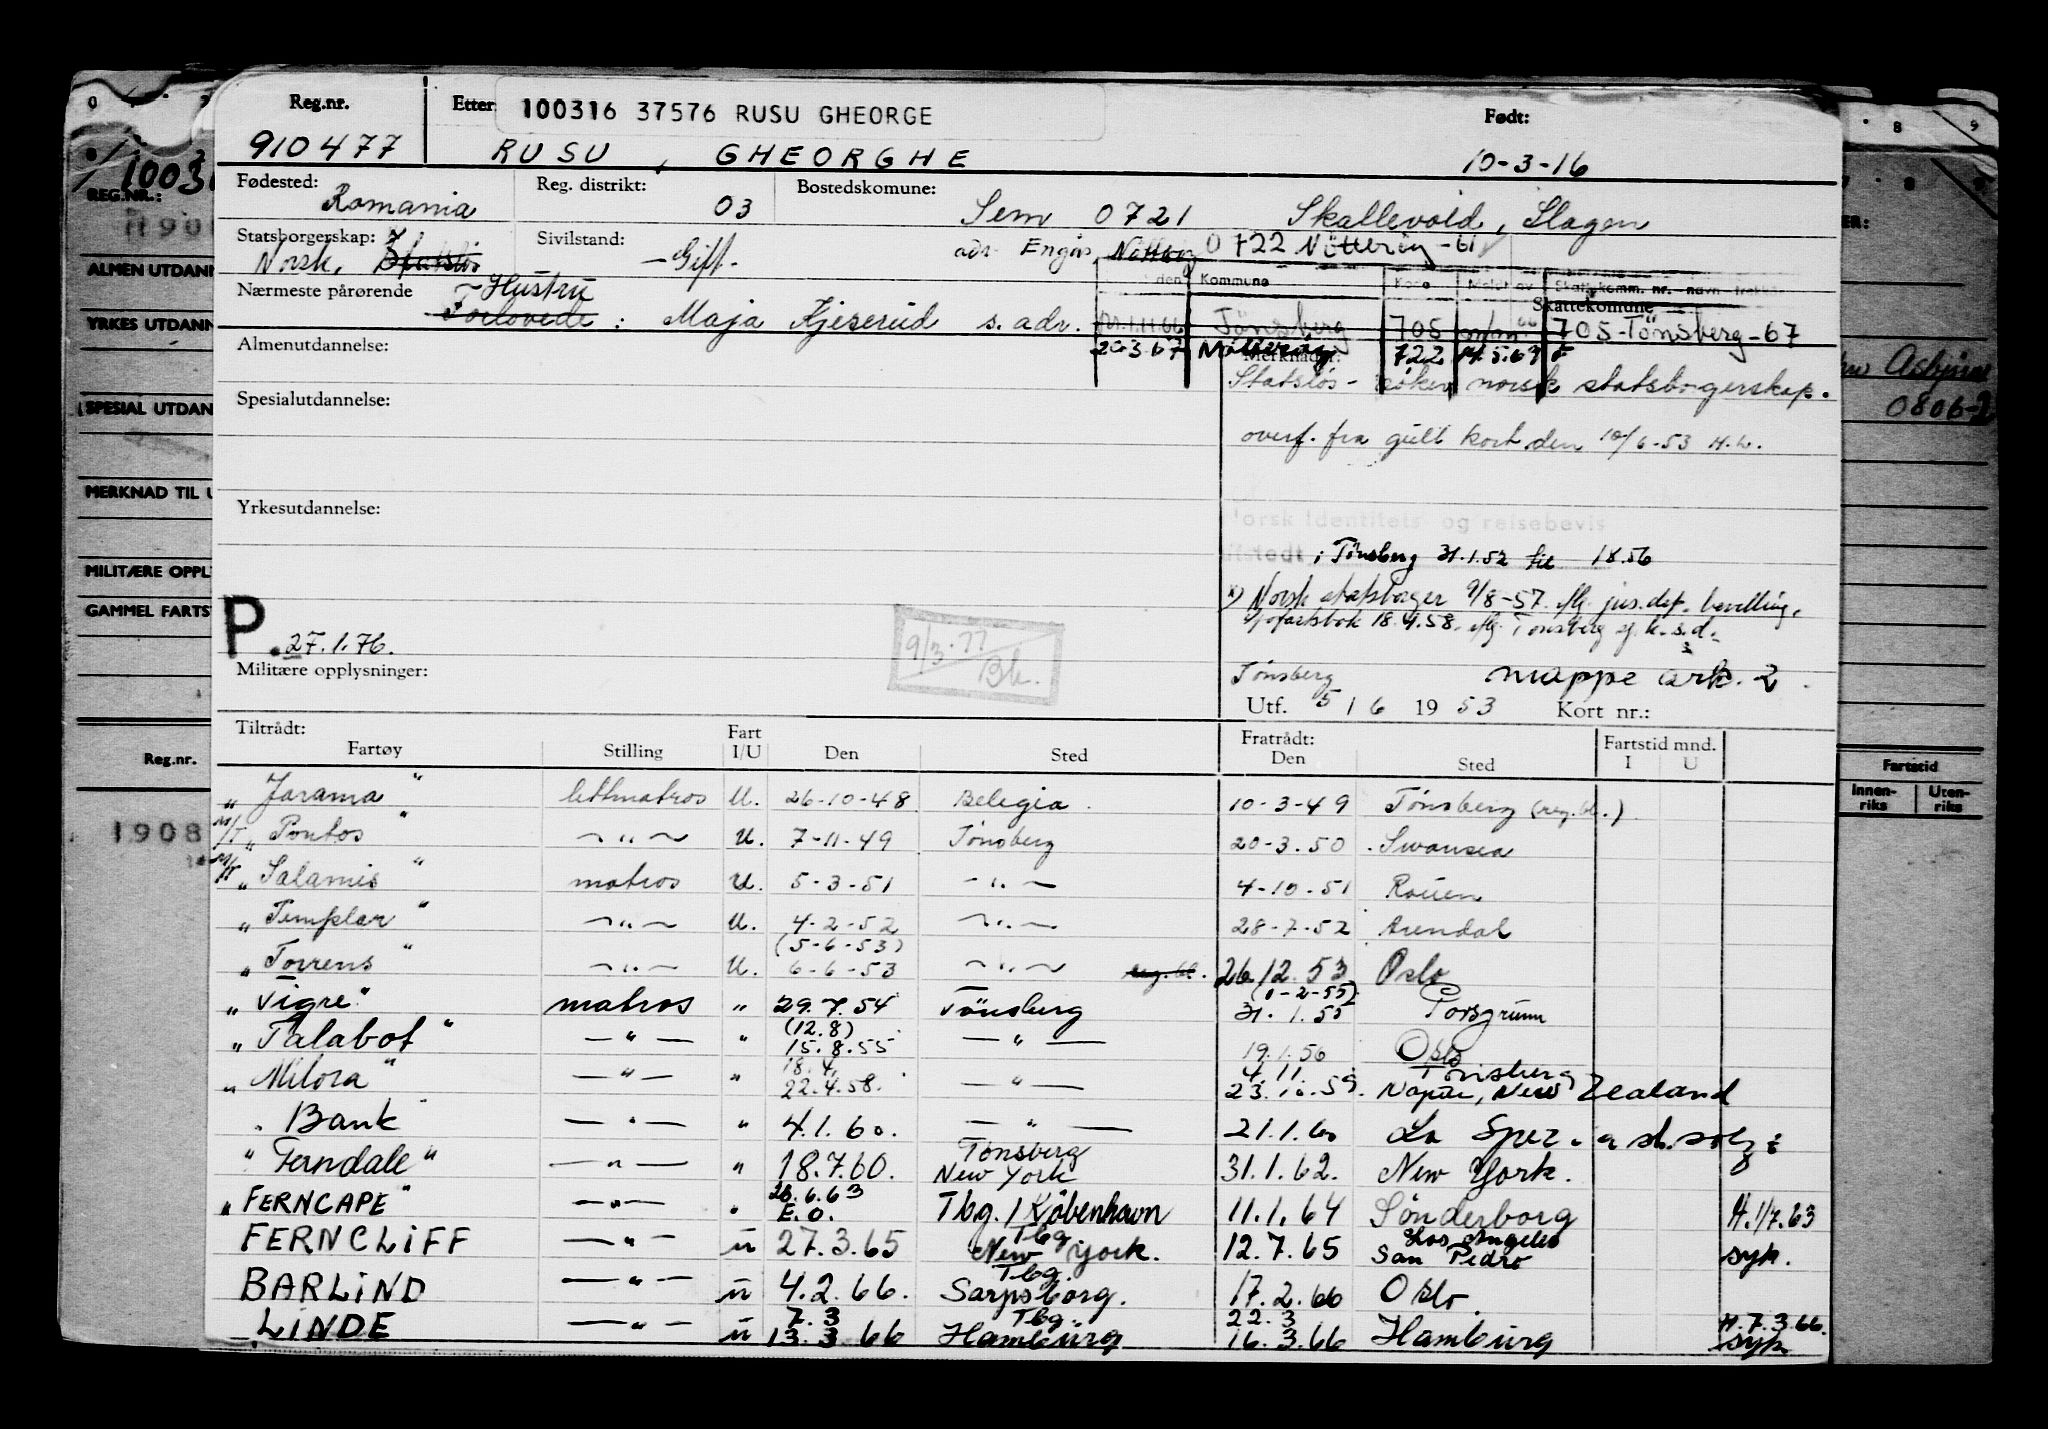 Reg.nr. Etter 100316 37576 RUSU GHEORGE Født:
910477 RUSU, GHEORGHE 10-3-16
Fødested: Romania Reg. distrikt: 03 Bostedskomune: Sem 0721 Skallevold, Slagen
Statsborgerskap: Norsk, Statsløs Sivilstand: Gift. adr Engås, Nøtterøy 0722 Nøtterøy-61
den Kommune Skattekomm. nr. - navn - trekk
Nærmeste pårørende Hustru Forlovede: Maja Kjeserud s. adr.
Skattekomune
Tønsberg 705 705-Tønsberg-67
20.3.67 Nøtterøy 722
Almenutdannelse: Merknader:
Statsløs - søker norsk statsborgerskap.
Spesialutdannelse:
overf. fra gult kort den 10/6-53 H.L.
Yrkesutdannelse:
Norsk Identitets- og reisebevis
utstedt i Tønsberg 31.1.52 til 1.8.56
x) Norsk statsborger 9/8-57. iflg. jus.dep. bevilling.
Sjøfartsbok 18.4.58. iflg. Tønsberg sj.k.s.d.
P. 27.1.76.
9/3.77 Bh.
Militære opplysninger:
Tønsberg mappe ark. 2.
Utf. 5/6 1953 Kort nr.:
Tiltrådt: Fratrådt: Fartstid mnd.
Fartøy Stilling Fart I/U Den Sted Den Sted I U
"Jarama" lettmatros U. 26-10-48 Belegia. 10-3-49 Tønsberg (reg.bl.)
M/T "Pontos" ~"~ U. 7-11-49 Tønsberg 20-3.50 Swansea
M/T "Salamis" matros U. 5-3-51 -"- 4-10-51 Rouen
"Templar" ~"~ U. 4-2-52 ~"~ 28-7-52 Arendal
"Torrens" ~"~ U. (5-6-53) 6-6-53 ~"~ reg.bl. 26.12.53 Oslo
"Tigre" matros " 29.7.54 Tönsberg (1-2-55) 31.1.55 Porsgrunn
"Talabot" -"- " (12.8) 15.8.55 -"- 19.1.56 Oslo
"Milora" -"- " 18.4. 22.4.58. -"- 4.11 Tönsberg 23.10.59. Napier, New Zealand
"Bank" -"- " 4.1.60. -"- 21.1.60 La Spezia
"Ferndale" -"- " 18.7.60. Tönsberg New York 31.1.62. New York.
"FERNCAPE" -"- " 28.6.63 E.O. Tbg. / København 11.1.64 Sønderborg H.1/7.63
FERNCLIFF -"- U 27.3.65 Tbg New York. 12.7.65 Los Angeles San Pedro syk.
BARLIND -"- U 4.2.66. Tbg. Sarpsborg. 17.2.66 Oslo.
LINDE -"- U 7.3 13.3 66 Tbg Hamburg 22.3 16.3.66 Hamburg H.7.3.66. syk
REG.NR.:
ALMEN UTDANN
YRKES UTDANN
SPESIAL UTDAN
MERKNAD TIL U
MILITÆRE OPPL
GAMMEL FARTS
Reg.nr.
1908
0806-2
Fartstid
Innen-riks Uten-riks